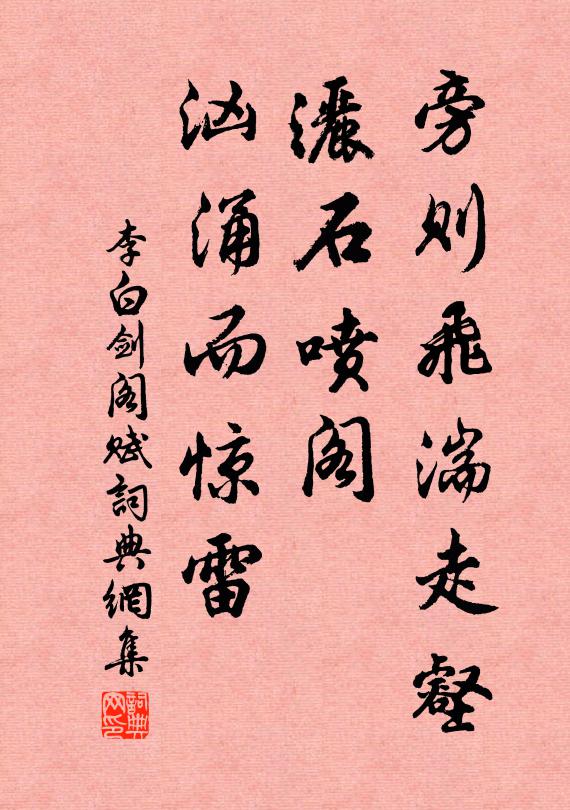 旁则飛湍走壑
灑石喷阁
汹涌而惊雷
李白剑阁赋詞典網集
詞典网印